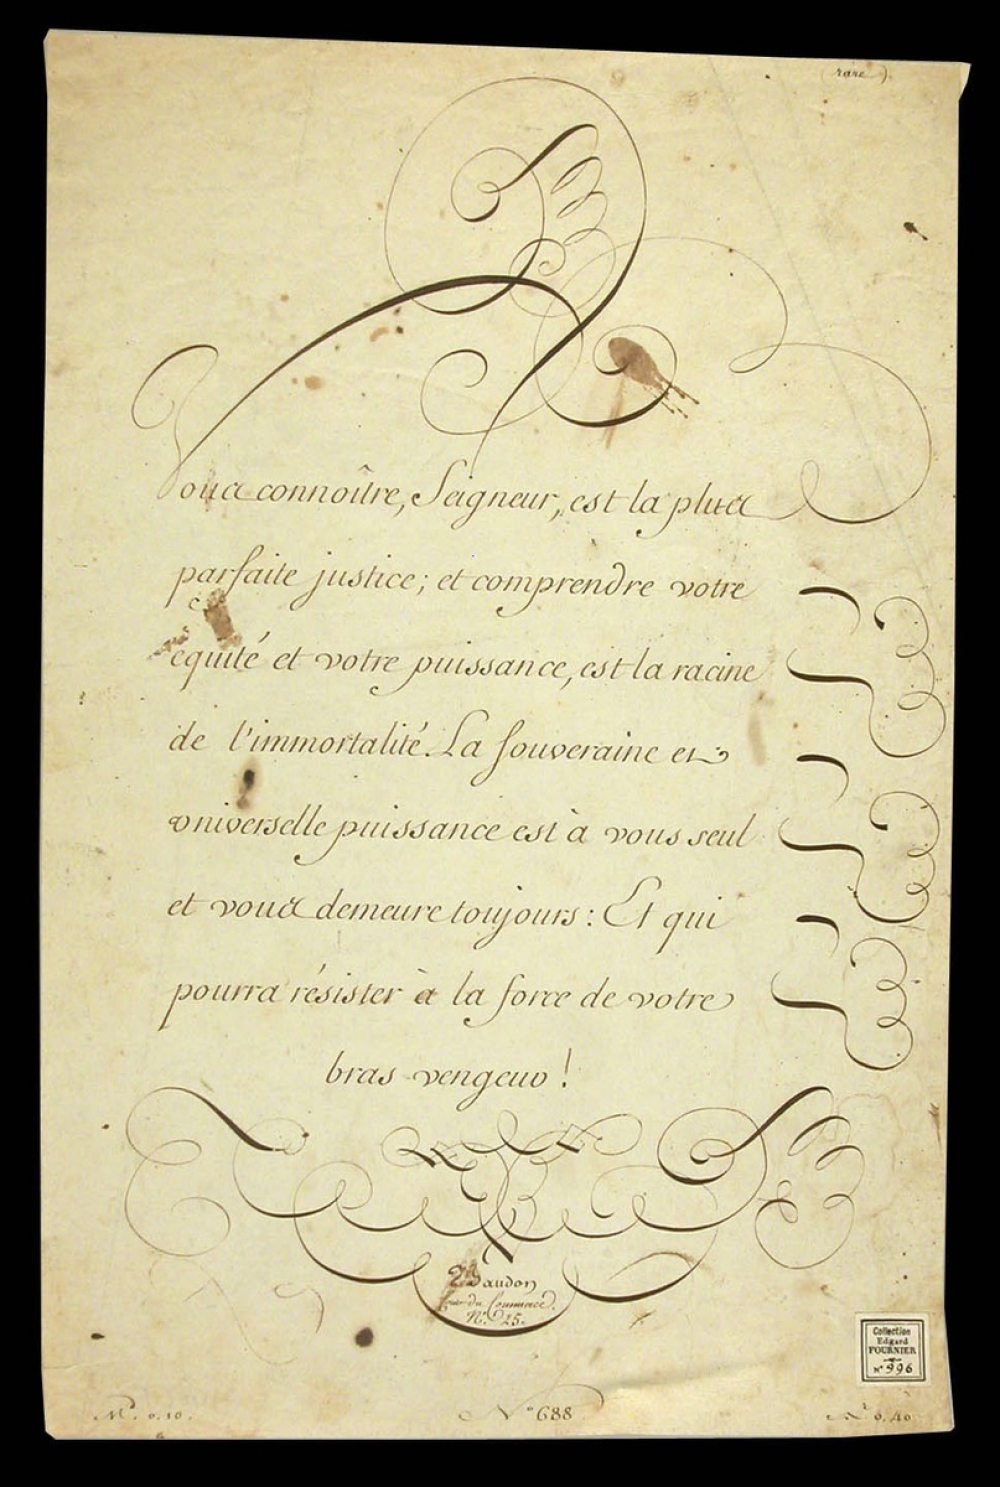 (rare).
Vous connoître, Seigneur, est la plus
parfaite justice; et comprendre votre
équité et votre puissance, est la racine
de l'immortalité. La souveraine et
vniverselle puissance est à vous seul
et vous demeure toujours: Et qui
pourra résister à la force de votre
bras vengeur!
Baudon
du Commerce.
N.º 25.
Collection
Edgard
FOURNIER
Nº 996
0.10.
Nº 688
0.40